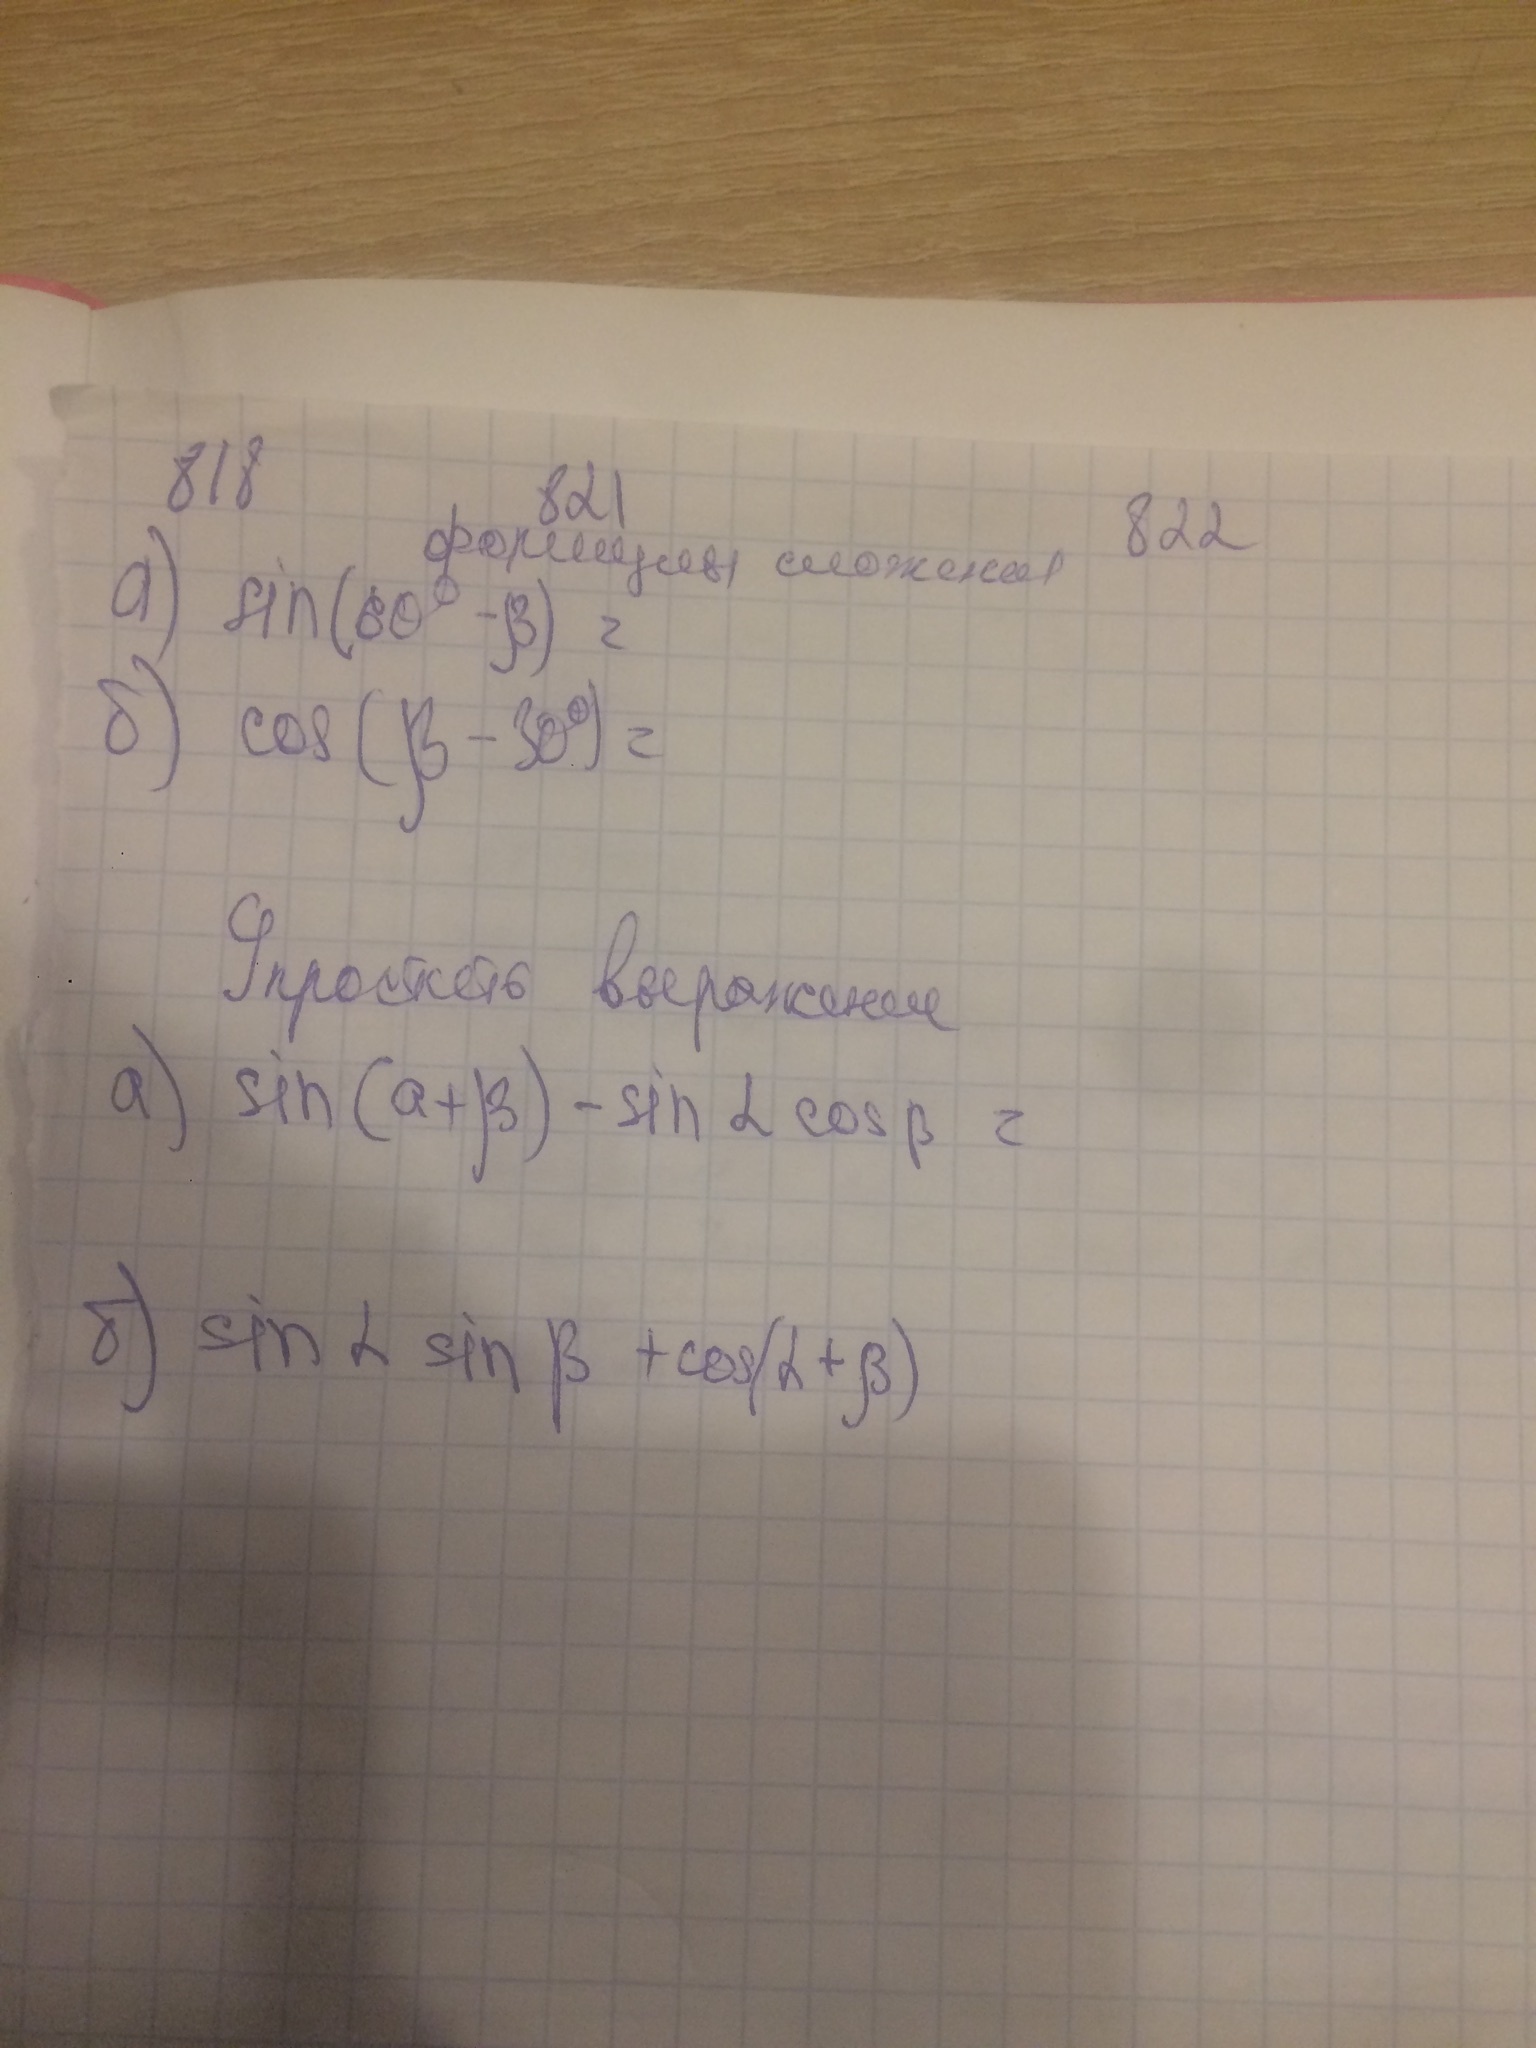 818 821 822
формулы сложения
а) sin(60° - β) =
б) cos(β - 30°) =
Упростить выражение
а) sin(α + β) - sin α cos β =
б) sin α sin β + cos(α + β)